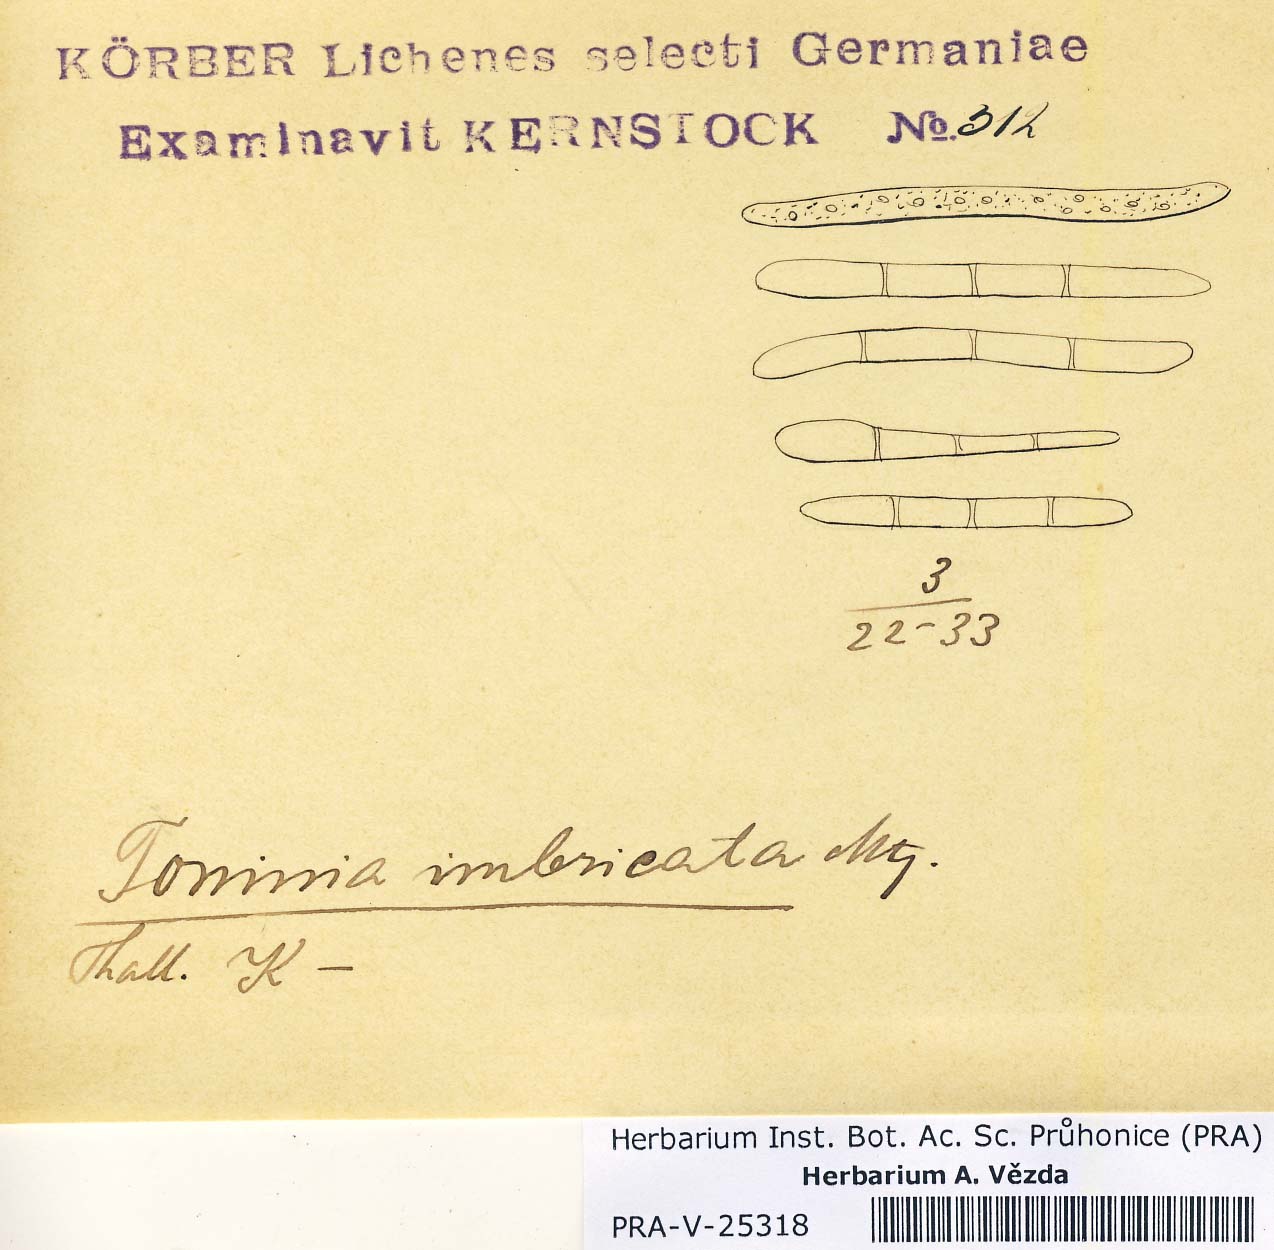 KÖRBER Lichenes selecti Germaniae
Examinavit KERNSTOCK No. 312
3
22-33
Toninia imbricata Mtg.
Thall. K –
Herbarium Inst. Bot. Ac. Sc. Průhonice (PRA)
Herbarium A. Vězda
PRA-V-25318